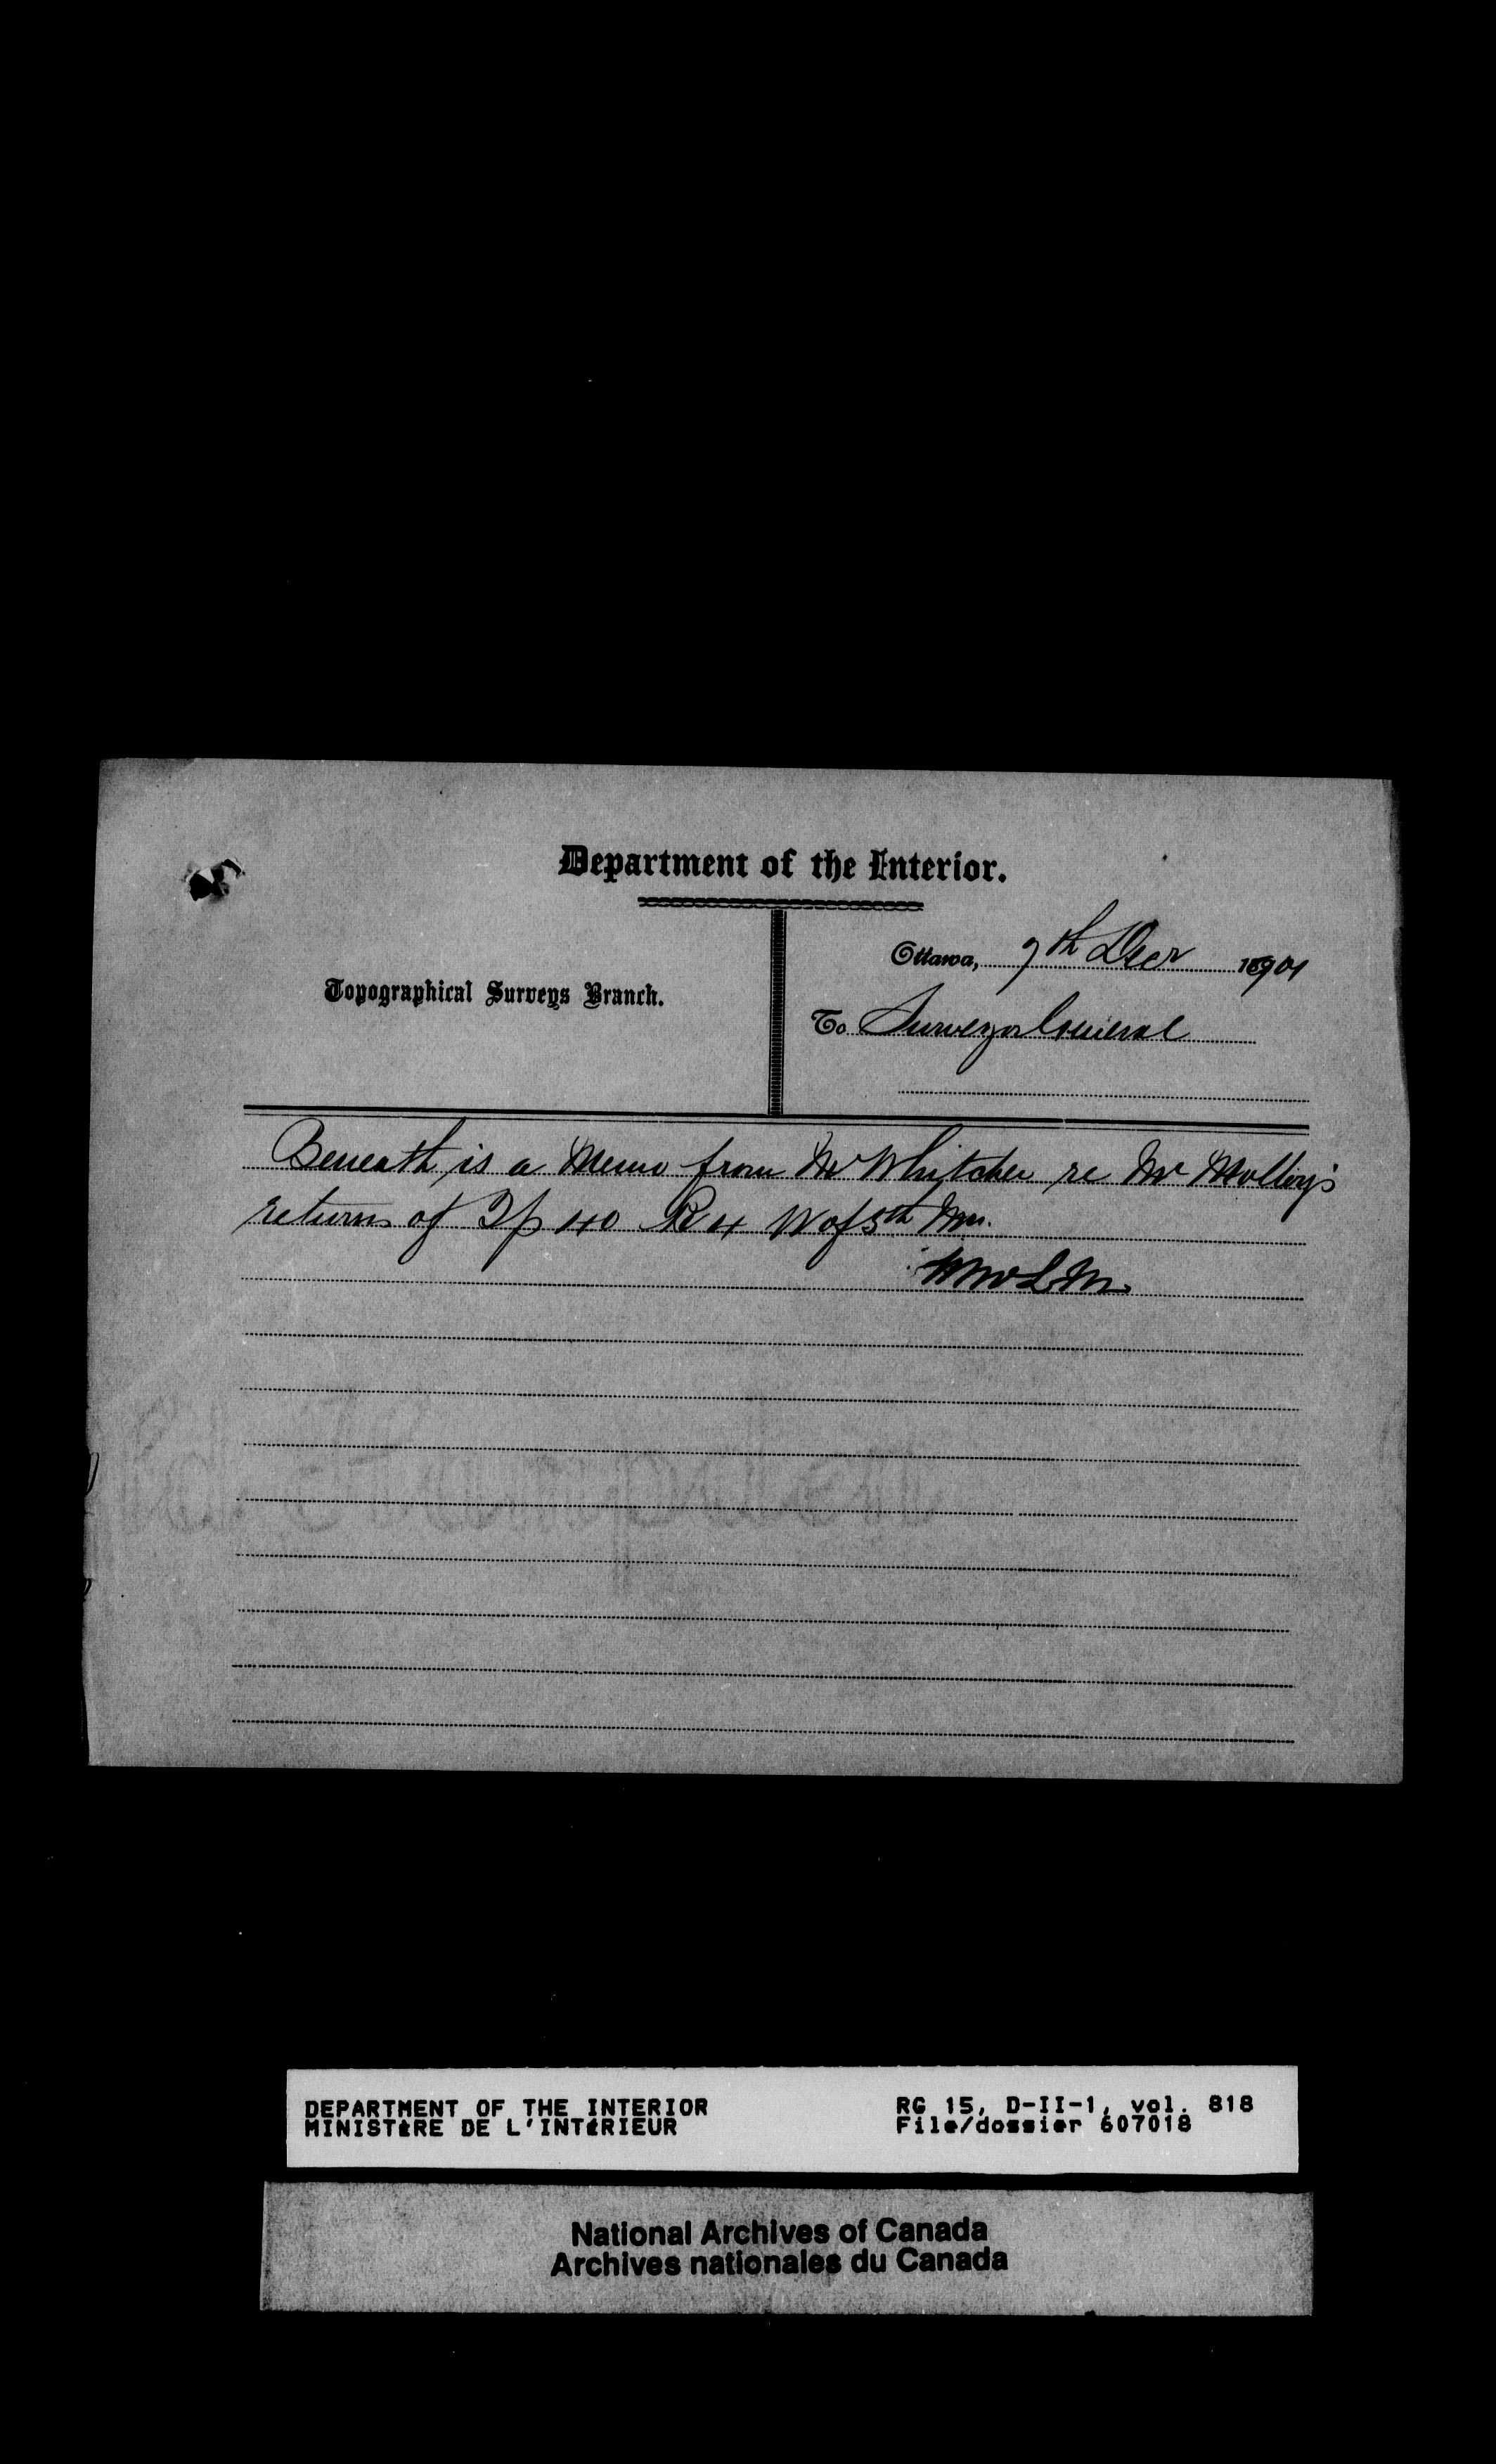 Department of the Interior.
Topographical Surveys Branch.
Ottawa, 9th Decr 1901
To Surveyor General
Beneath is a Memo from Mr Whitcher re Mr Molloy's
returns of Tp 40 R 4 W of 5th Mer.
DEPARTMENT OF THE INTERIOR
MINISTÈRE DE L'INTÉRIEUR
RG 15, D-II-1, vol. 818
File/dossier 607018
National Archives of Canada
Archives nationales du Canada